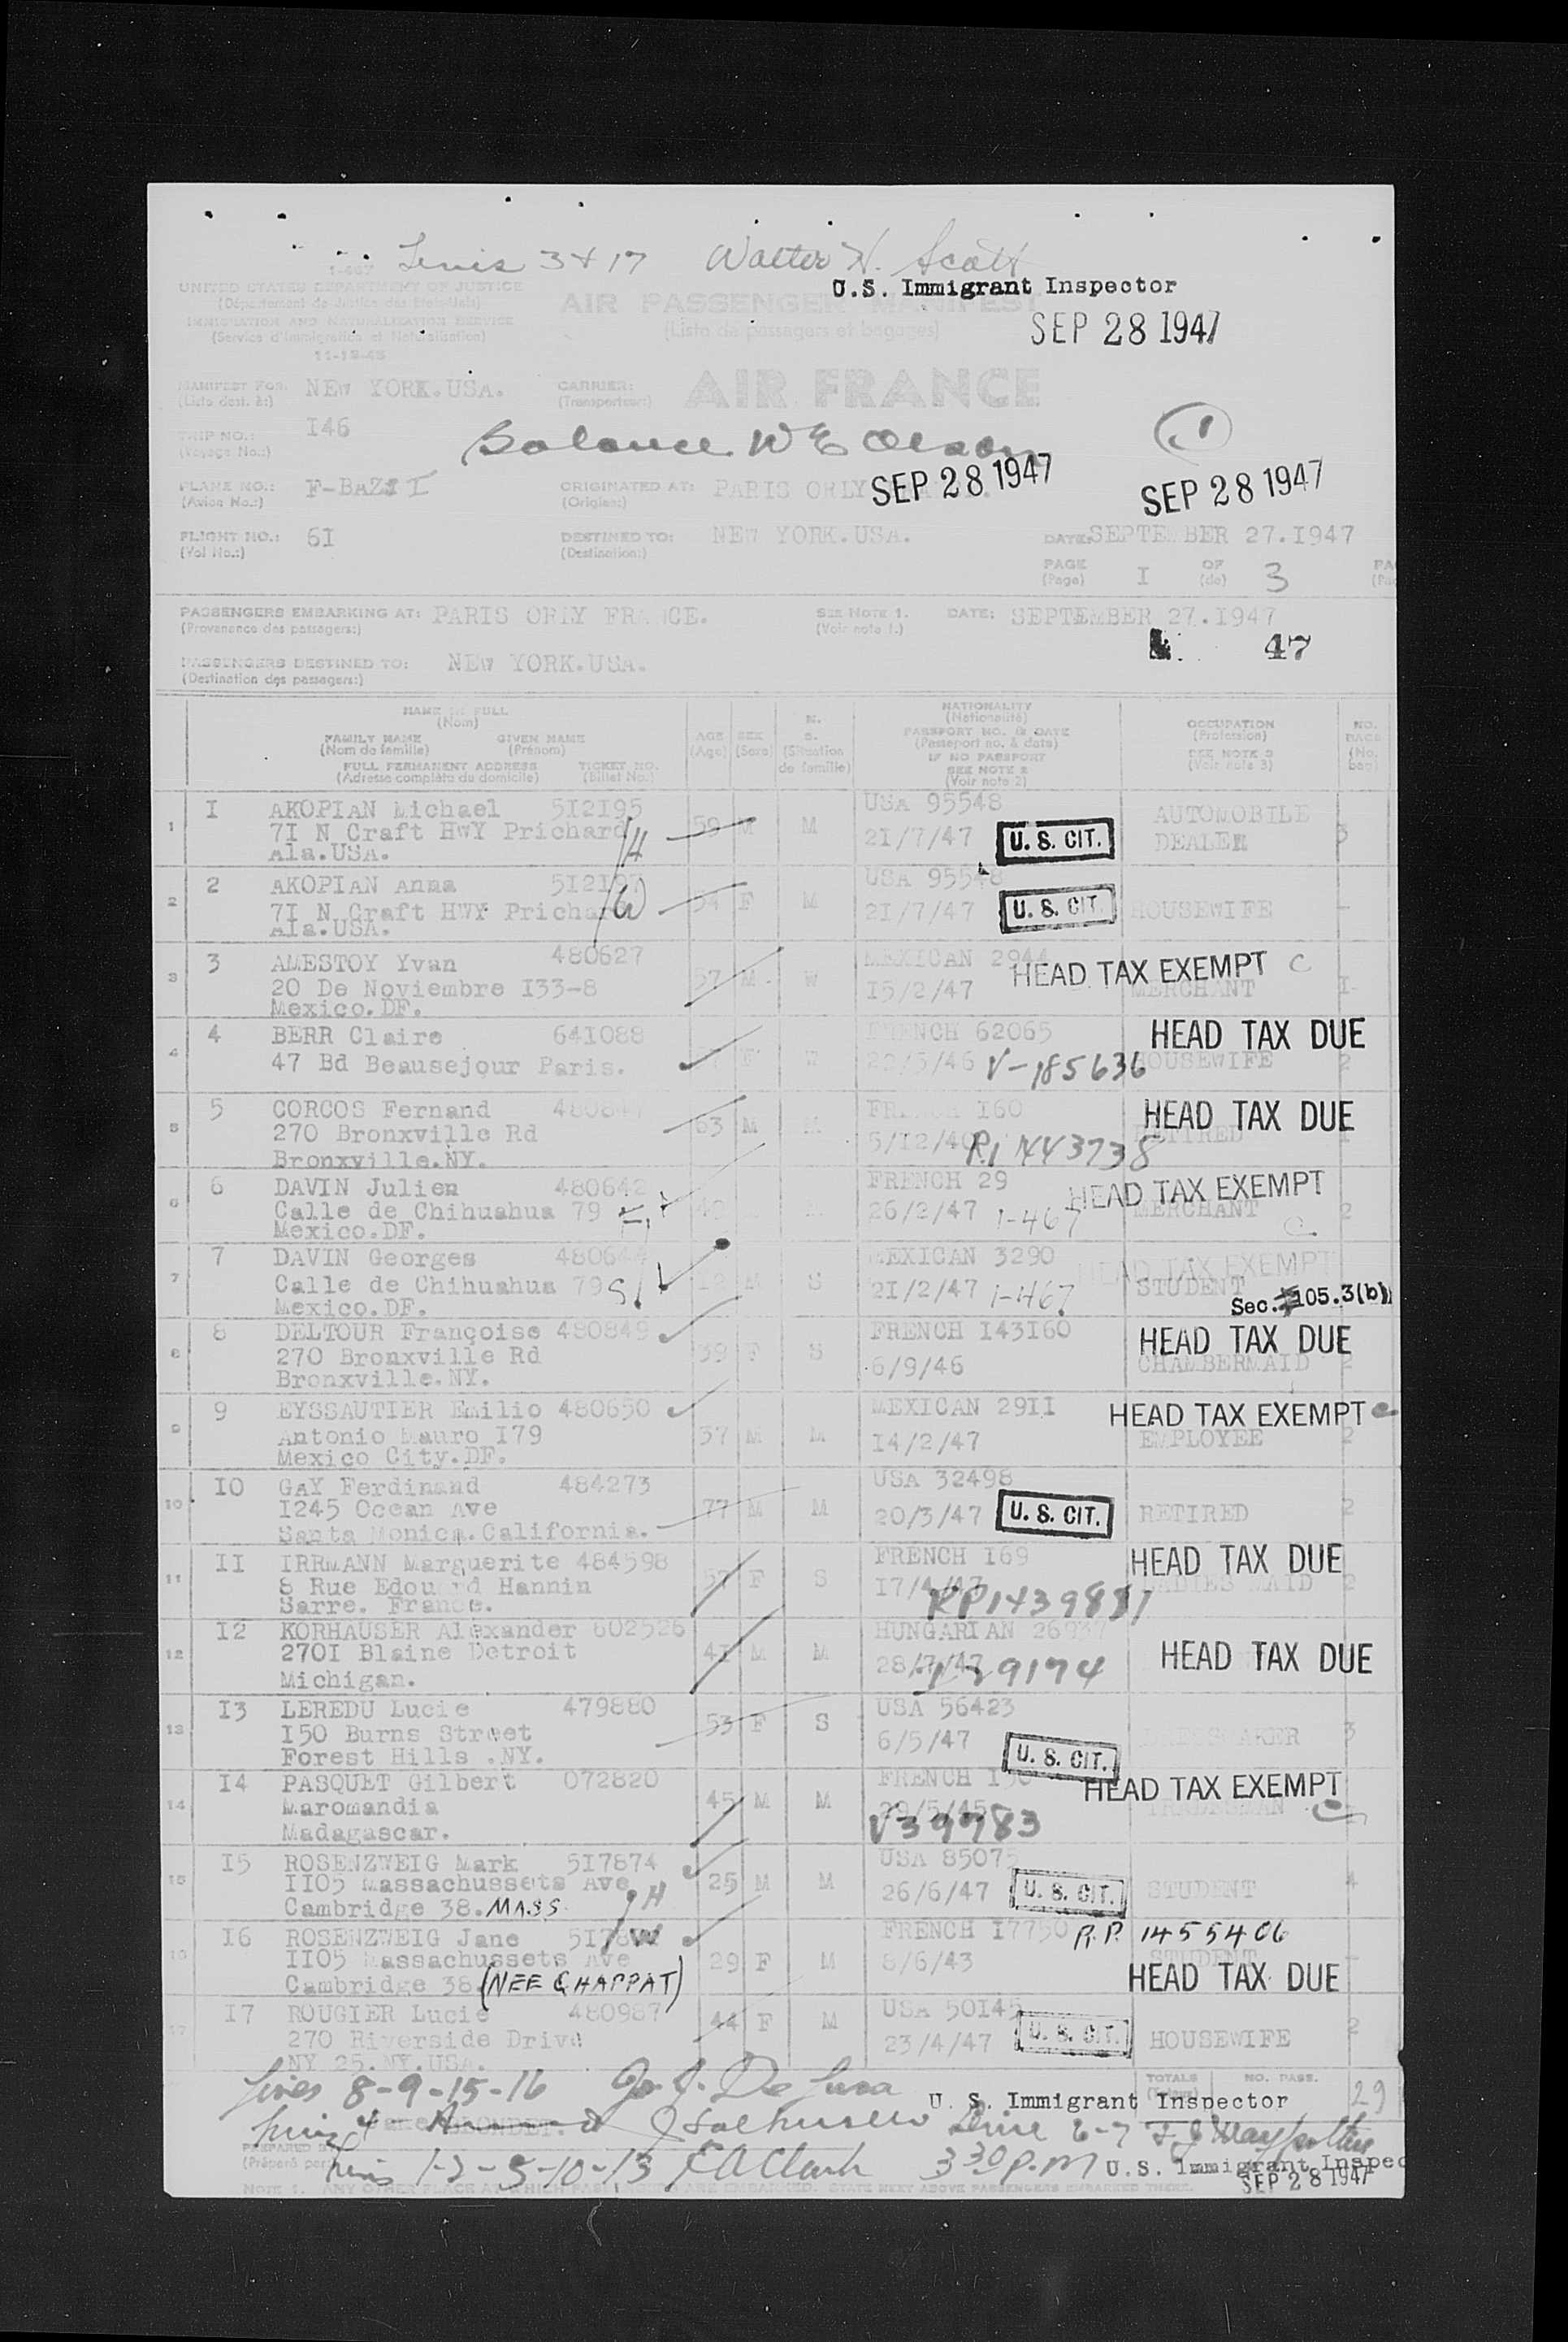 Lines 3 & 17 Walter H. Scott
U.S. Immigrant Inspector
I-467
UNITED STATES DEPARTMENT OF JUSTICE
(Département de Justice des Etats-Unis)
AIR PASSENGER MANIFEST
IMMIGRATION AND NATURALIZATION SERVICE
(Liste de passagers et bagages)
(Service d'Immigration et Naturalisation)
SEP 28 1947
11-13-45
MANIFEST FOR: NEW YORK.USA. CARRIER: AIR FRANCE
(Liste dest. à:) (Transporteur:)
TRIP NO.: I46
(Voyage No.:)
Balance W E Olson
1
SEP 28 1947
SEP 28 1947
PLANE NO.: F-BAZI I ORIGINATED AT: PARIS ORLY
(Avion No.:) (Origine:)
FLIGHT NO.: 6I DESTINED TO: NEW YORK.USA. DATE: SEPTEMBER 27.I947
(Vol No.:) (Destination:)
PAGE I OF 3
(Page) (de)
PASSENGERS EMBARKING AT: PARIS ORLY FRANCE. SEE NOTE 1. DATE: SEPTEMBER 27.I947
(Provenance des passagers:) (Voir note 1.)
47
PASSENGERS DESTINED TO: NEW YORK.USA.
(Destination des passagers:)
NAME IN FULL
(Nom)
FAMILY NAME GIVEN NAME
(Nom de famille) (Prénom)
FULL PERMANENT ADDRESS TICKET NO.
(Adresse complète du domicile) (Billet No.)
AGE
(Age)
SEX
(Sexe)
M.
S.
(Situation de famille)
NATIONALITY
(Nationalité)
PASSPORT NO. & DATE
(Passeport no. & date)
IF NO PASSPORT
SEE NOTE 2
(Voir note 2)
OCCUPATION
(Profession)
SEE NOTE 3
(Voir note 3)
NO.
(No.
1 I AKOPIAN Michael 5I2I95 59 M M USA 95548 AUTOMOBILE 3
7I N Craft HwY Prichard H 2I/7/47 U.S. CIT. DEALER
Ala.USA.
2 2 AKOPIAN Anna 5I2I97 54 F M USA 95548
7I N Craft HWY Prichard W 2I/7/47 U.S. CIT. HOUSEWIFE -
Ala.USA.
3 3 AMESTOY Yvan 480627 57 M W MEXICAN 2944 HEAD TAX EXEMPT C
20 De Noviembre I33-8 I5/2/47 MERCHANT I
Mexico.DF.
4 4 BERR Claire 641088 F W FRENCH 62065 HEAD TAX DUE
47 Bd Beausejour Paris. 22/5/46 V-185636 HOUSEWIFE 2
5 5 CORCOS Fernand 63 M M FRENCH I60 HEAD TAX DUE
270 Bronxville Rd 5/I2/46 RETIRED
Bronxville.NY.
6 6 DAVIN Julien 480642 M FRENCH 29 HEAD TAX EXEMPT
Calle de Chihuahua 79 26/2/47 1-467 MERCHANT C 2
Mexico.DF.
7 7 DAVIN Georges 480644 12 M S MEXICAN 3290 HEAD TAX EXEMPT
Calle de Chihuahua 79 S 2I/2/47 1-467 STUDENT
Mexico.DF. Sec. 105.3(b)
8 8 DELTOUR Françoise 480849 39 F S FRENCH I43I60 HEAD TAX DUE
270 Bronxville Rd 6/9/46 CHAMBERMAID 2
Bronxville.NY.
9 9 EYSSAUTIER Emilio 480650 37 M M MEXICAN 29II HEAD TAX EXEMPT c
Antonio Mauro I79 I4/2/47 EMPLOYEE 2
Mexico City.DF.
10 IO GAY Ferdinand 484273 77 M M USA 32498
I245 Ocean Ave 20/3/47 U.S. CIT. RETIRED 2
Santa Monica.California.
11 II IRRMANN Marguerite 484598 57 F S FRENCH I69 HEAD TAX DUE
8 Rue Edouard Hannin I7/4/47 LADIES MAID 2
Sarre. France.
12 I2 KORHAUSER Alexander 602526 4I M M HUNGARIAN 26937
270I Blaine Detroit 28/7/47 HEAD TAX DUE
Michigan.
13 I3 LEREDU Lucie 479880 53 F S USA 56423
I50 Burns Street 6/5/47 U.S. CIT. 3
Forest Hills .NY.
14 I4 PASQUET Gilbert 072820 45 M M FRENCH HEAD TAX EXEMPT
Maromandia 29/5/45 TRADESMAN
Madagascar. V39783
15 I5 ROSENZWEIG Mark 5I7874 25 M M USA 85075 4
II05 Massachussets Ave H 26/6/47 U.S. CIT. STUDENT
Cambridge 38. MASS
16 I6 ROSENZWEIG Jane W 29 F M FRENCH I7750 R.P. 1455406
II05 Massachussets Ave 8/6/43 STUDENT -
Cambridge 38. (NEE CHAPPAT) HEAD TAX DUE
17 I7 ROUGIER Lucie 480987 44 F M USA 50I45 2
270 Riverside Drive 23/4/47 U.S. CIT. HOUSEWIFE
NY 25.NY.USA.
Lines 8-9-15-16
TOTALS NO. PASS. 29
U. S. Immigrant Inspector
Line 6-7
PREPARED
(Préparé par)
Lines 1-2-5-10-13 E A Clark 3 30 P.M
U.S. Immigrant Inspec
SEP 28 1947
NOTE 1. ANY OTHER PLACE AT WHICH PASSENGERS ARE EMBARKED. STATE NEXT ABOVE PASSENGERS EMBARKED THERE.